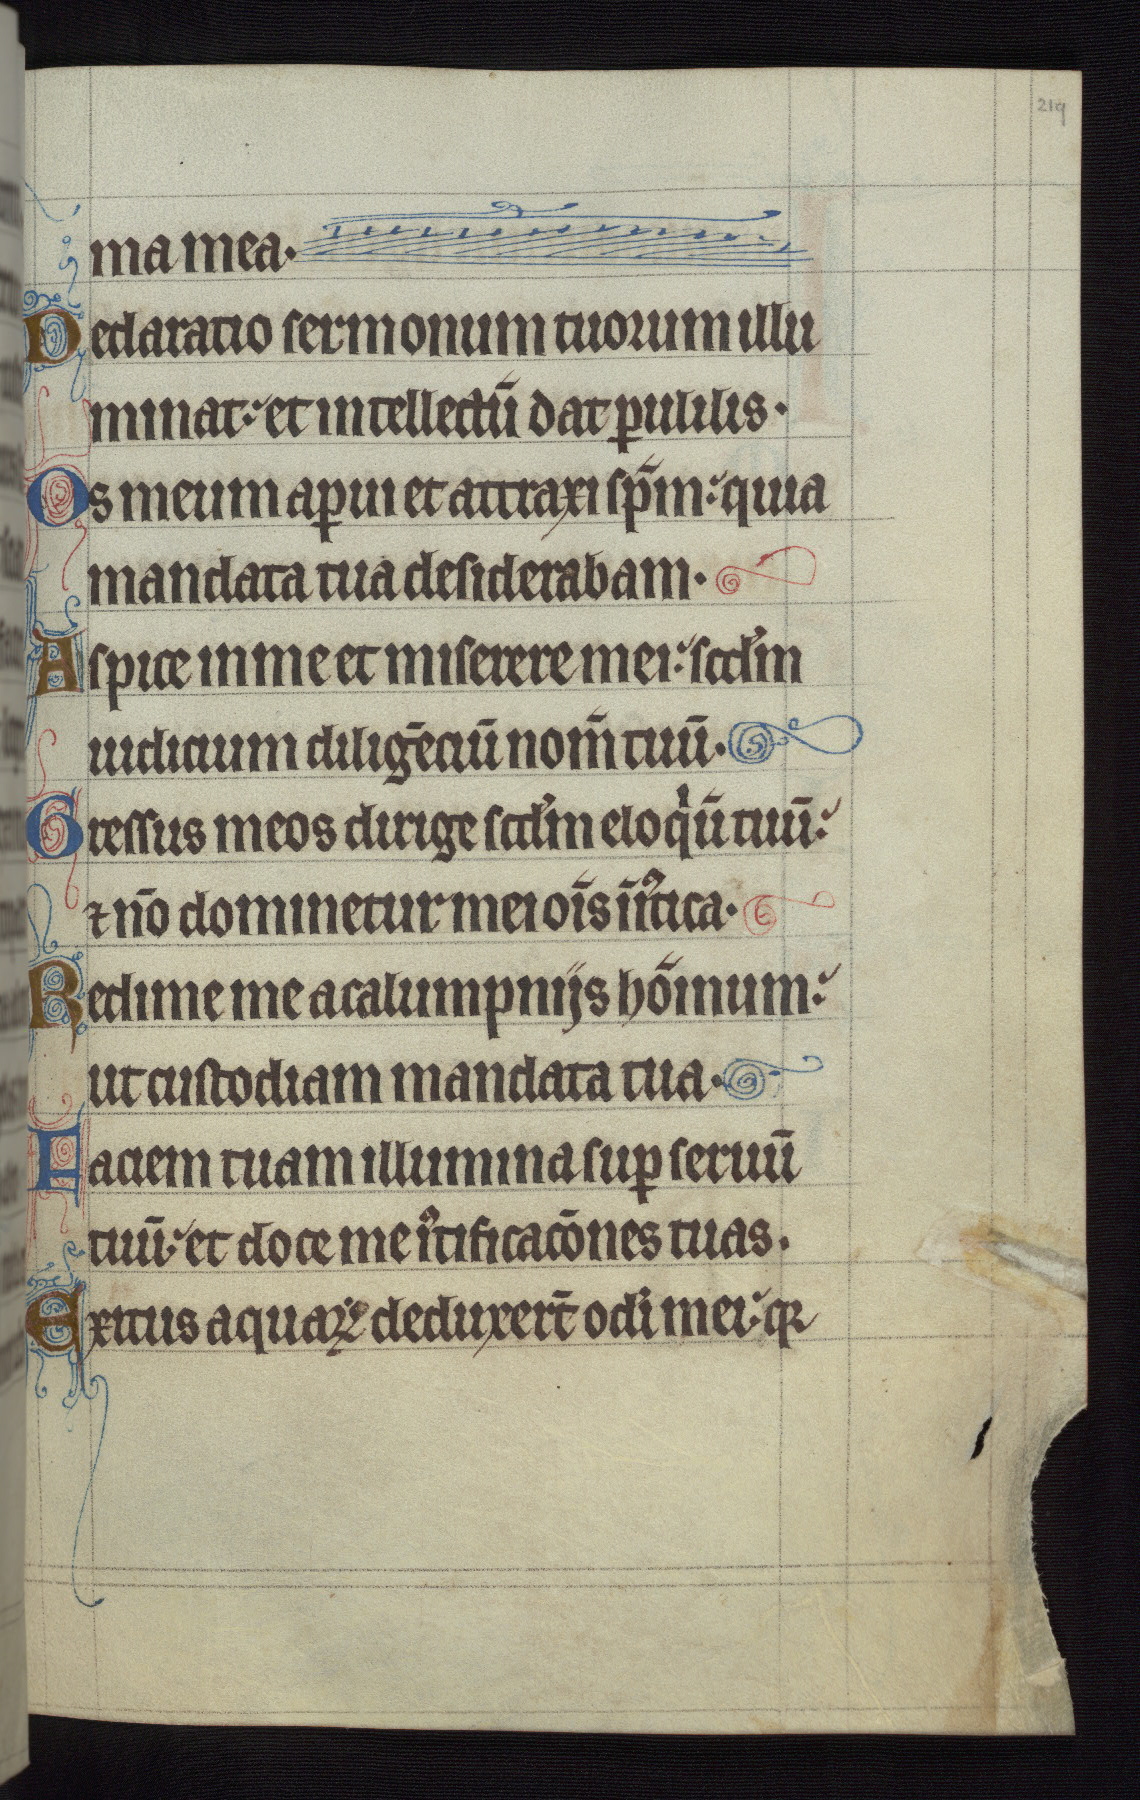 219
ma mea.
Declaratio sermonum tuorum illu
minat: et intellectū dat ꝑuulis.
Os meum aꝑui et attraxi sp̄m: quia
mandata tua desiderabam.
Aspice in me et miserere mei: scd'm
iudicium diligēciū nom̄ tuū.
Gressus meos dirige scd'm eloqͥū tuū:
⁊ nō dominetur mei oīs īiᷓtica.
Redime me a calumpnijs hōinum:
ut custodiam mandata tua.
Faciem tuam illumina suꝑ seruū
tuū: et doce me iᷓtificacōnes tuas.
Exitus aquaꝝ deduxert̄ oc̄li mei: qꝛ